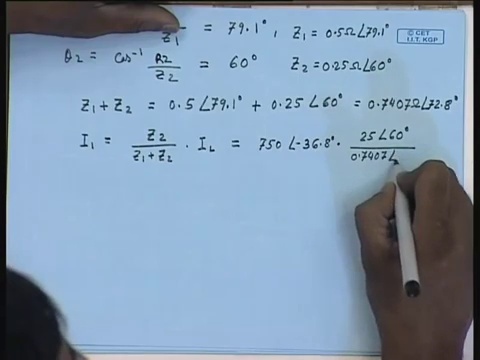 Z1 = 79.1°, Z1 = 0.5Ω∠79.1°
© CET
I.I.T. KGP
θ2 = Cos⁻¹ R2/Z2 = 60° Z2 = 0.25Ω∠60°
Z1 + Z2 = 0.5∠79.1° + 0.25∠60° = 0.7407Ω∠72.8°
I1 = Z2/(Z1+Z2) · IL = 750∠-36.8° · 25∠60°/0.7407∠